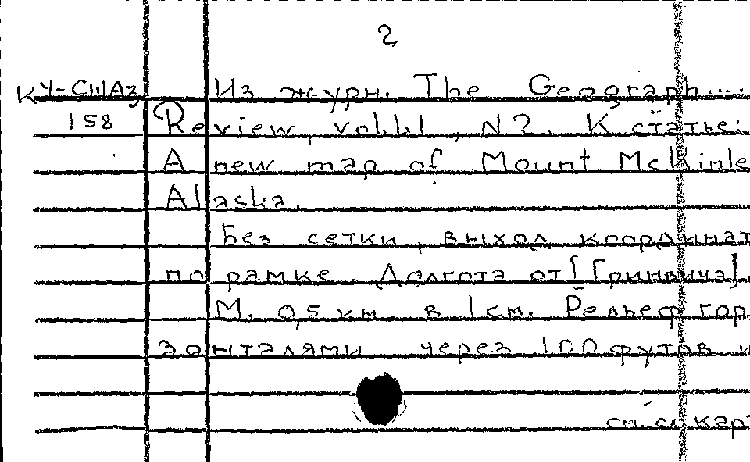 2
КУ-США3 Из журн. The Geograph...
158 Review, vol. LI, N2. К статье:
A new map of Mount McKinle
Alaska.
Без сетки, выход координат
по рамке. Долгота от [Гринвича].
М. 0,5 км. в 1 см. Рельеф гор
зонталями через 100 футов и
см. с. кар